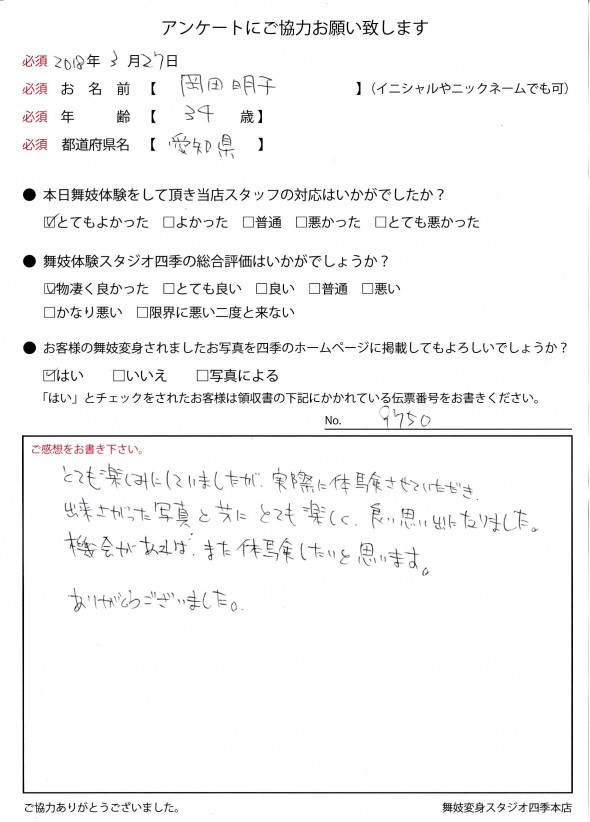 アンケートにご協力お願い致します
必須 2018年 3月27日
必須 お名前 【 岡田明子 】（イニシャルやニックネームでも可）
必須 年齢 【 34 歳】
必須 都道府県名 【 愛知県 】
● 本日舞妓体験をして頂き当店スタッフの対応はいかがでしたか？
☑とてもよかった □よかった □普通 □悪かった □とても悪かった
● 舞妓体験スタジオ四季の総合評価はいかがでしょうか？
☑物凄く良かった □とても良い □良い □普通 □悪い
□かなり悪い □限界に悪い二度と来ない
● お客様の舞妓変身されましたお写真を四季のホームページに掲載してもよろしいでしょうか？
☑はい □いいえ □写真による
「はい」とチェックをされたお客様は領収書の下記にかかれている伝票番号をお書きください。
No. 9750
ご感想をお書き下さい。
とても楽しみにしていましたが、実際に体験させていただき、
出来さがった写真と共に とても楽しく、良い思い出になりました。
機会があれば、また体験したいと思います。
ありがとうございました。
ご協力ありがとうございました。
舞妓変身スタジオ四季本店